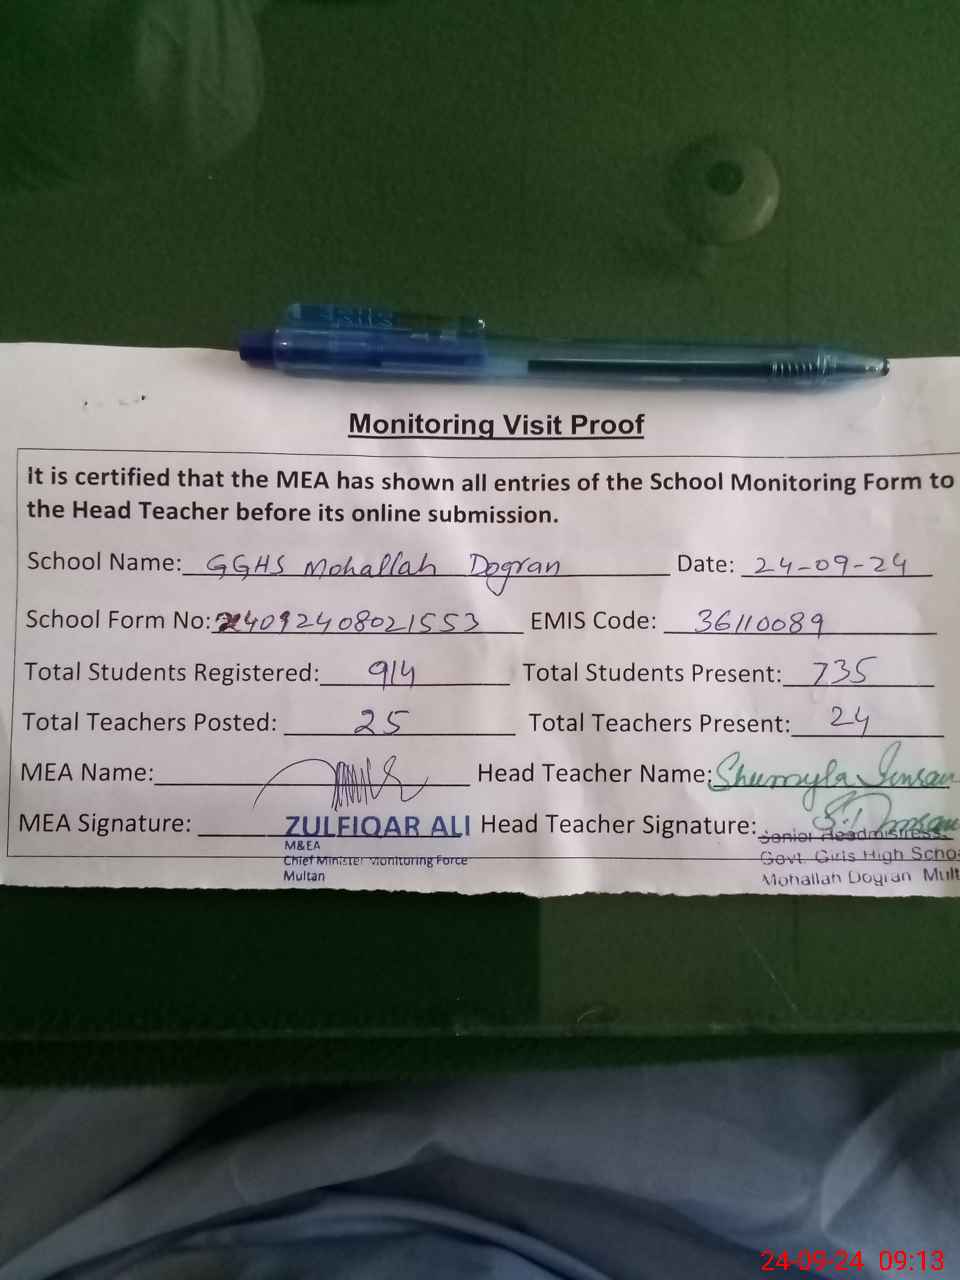 Monitoring Visit Proof
It is certified that the MEA has shown all entries of the School Monitoring Form to
the Head Teacher before its online submission.
School Name: GGHS Mohallah Dogran Date: 24-09-24
School Form No: 24092408021553 EMIS Code: 36110089
Total Students Registered: 914 Total Students Present: 735
Total Teachers Posted: 25 Total Teachers Present: 24
MEA Name: Head Teacher Name: Shumyla
MEA Signature: ZULFIQAR ALI Head Teacher Signature:
M&EA Senior Headmistress
Chief Minister Monitoring Force Govt. Girls High Schoo
Multan Mohallah Dogran Mult
24-09-24 09:13